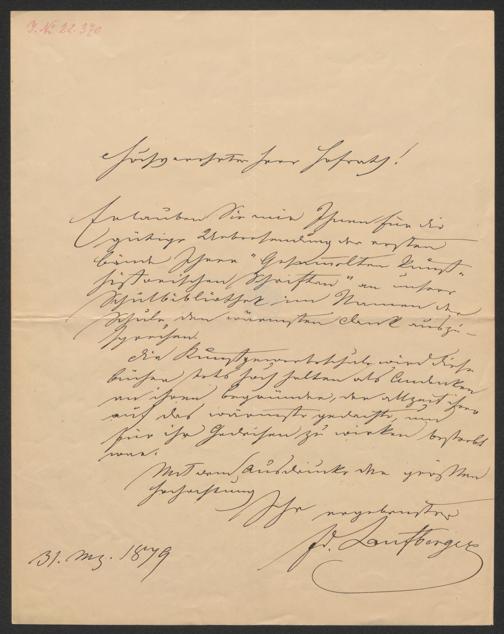 J. N. 22.370
Hochverehrter Herr Hofrath!
Erlauben Sie mir Ihnen für die
gütige Uebersendung der ersten
bände Ihrer "Gesammelten Kunst-
historischen Schriften" an unsere
Schulbibliothek im Namen der
Schule den wärmsten Dank auszu-
sprechen.
Die Kunstgewerbeschule wird diese
bücher stets hoch halten als Andenken
an ihren begründer, der allzeit ihrer
auf das wärmste gedachte, und
für ihr Gedeihen zu wirken bestrebt
war.
Mit dem Ausdrucke der größten
Hochachtung
Ihr ergebenster
Fd. Laufberger
31. Mz. 1879